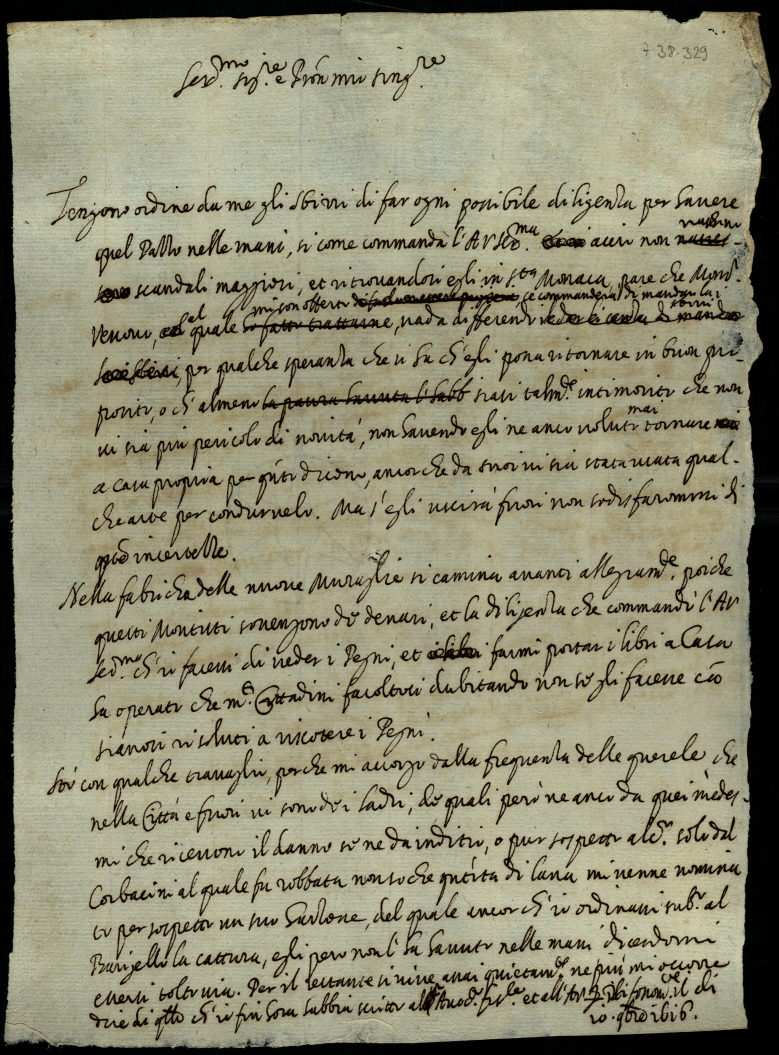 738-329
Ser.mo Sig.re e Pron mio sing.re
Tengono ordine da me gli sbirri di far ogni possibile diligenza per havere
quel Pazzo nelle mani, si come commanda l'A.V. Ser.ma acciò non naschino
scandali maggiori, et ritrovandosi egli in S.ta Monaca, pare che Mons.r
Vescovo, al quale mi son offerto se commanderà di mandar la i sbirri, vada differendo
per qualche speranza che si ha ch'egli possa ritornare in buon pro-
posito, o ch'almeno la paura havuta l'habb stia talm.te intimorito che non
vi sia più pericolo di novità, non havendo egli ne anco voluto mai tornare
a casa propria per q.to dicono, ancorche da suoi vi sia stata usata qual-
che arte per condurvelo. Ma s'egli uscirà fuori non sodisfaremmi di
q.to incertezze.
Nella fabrica delle nuove Muraglie si camina avanti allegram.te, poiche
questi Montisti sovengono de denari, et la diligenza che commandò l'A.V.
Ser.ma ch'io facessi di veder i Pegni, et farmi portar i libri a Casa
ha operato che m.ti Cittadini facoltosi dubitando non se gli facesse ciò
sianosi risoluti a riscotere i Pegni.
Stò con qualche travaglio, perche mi accorgo dalla frequenza delle querele che
nella Città e fuori vi sono de i ladri, de quali però ne anco da quei medes-
mi che ricevono il danno se ne da inditio, o pur sospetto alc.o solo dal
Corbacini al quale fu robbata non so che q.tità di lana mi venne nomina
to per sospetto un suo Garzone, del quale ancor ch'io ordinassi sub.o al
Barigello la cattura, egli però non l'ha havuto nelle mani dicendomi
essersi tolto via. Per il restante si vive assai quietam.te ne più mi occorre
dire di q.llo ch'io fin hora habbia scritto et all'A.V. il dì
10. 9bre 1616.